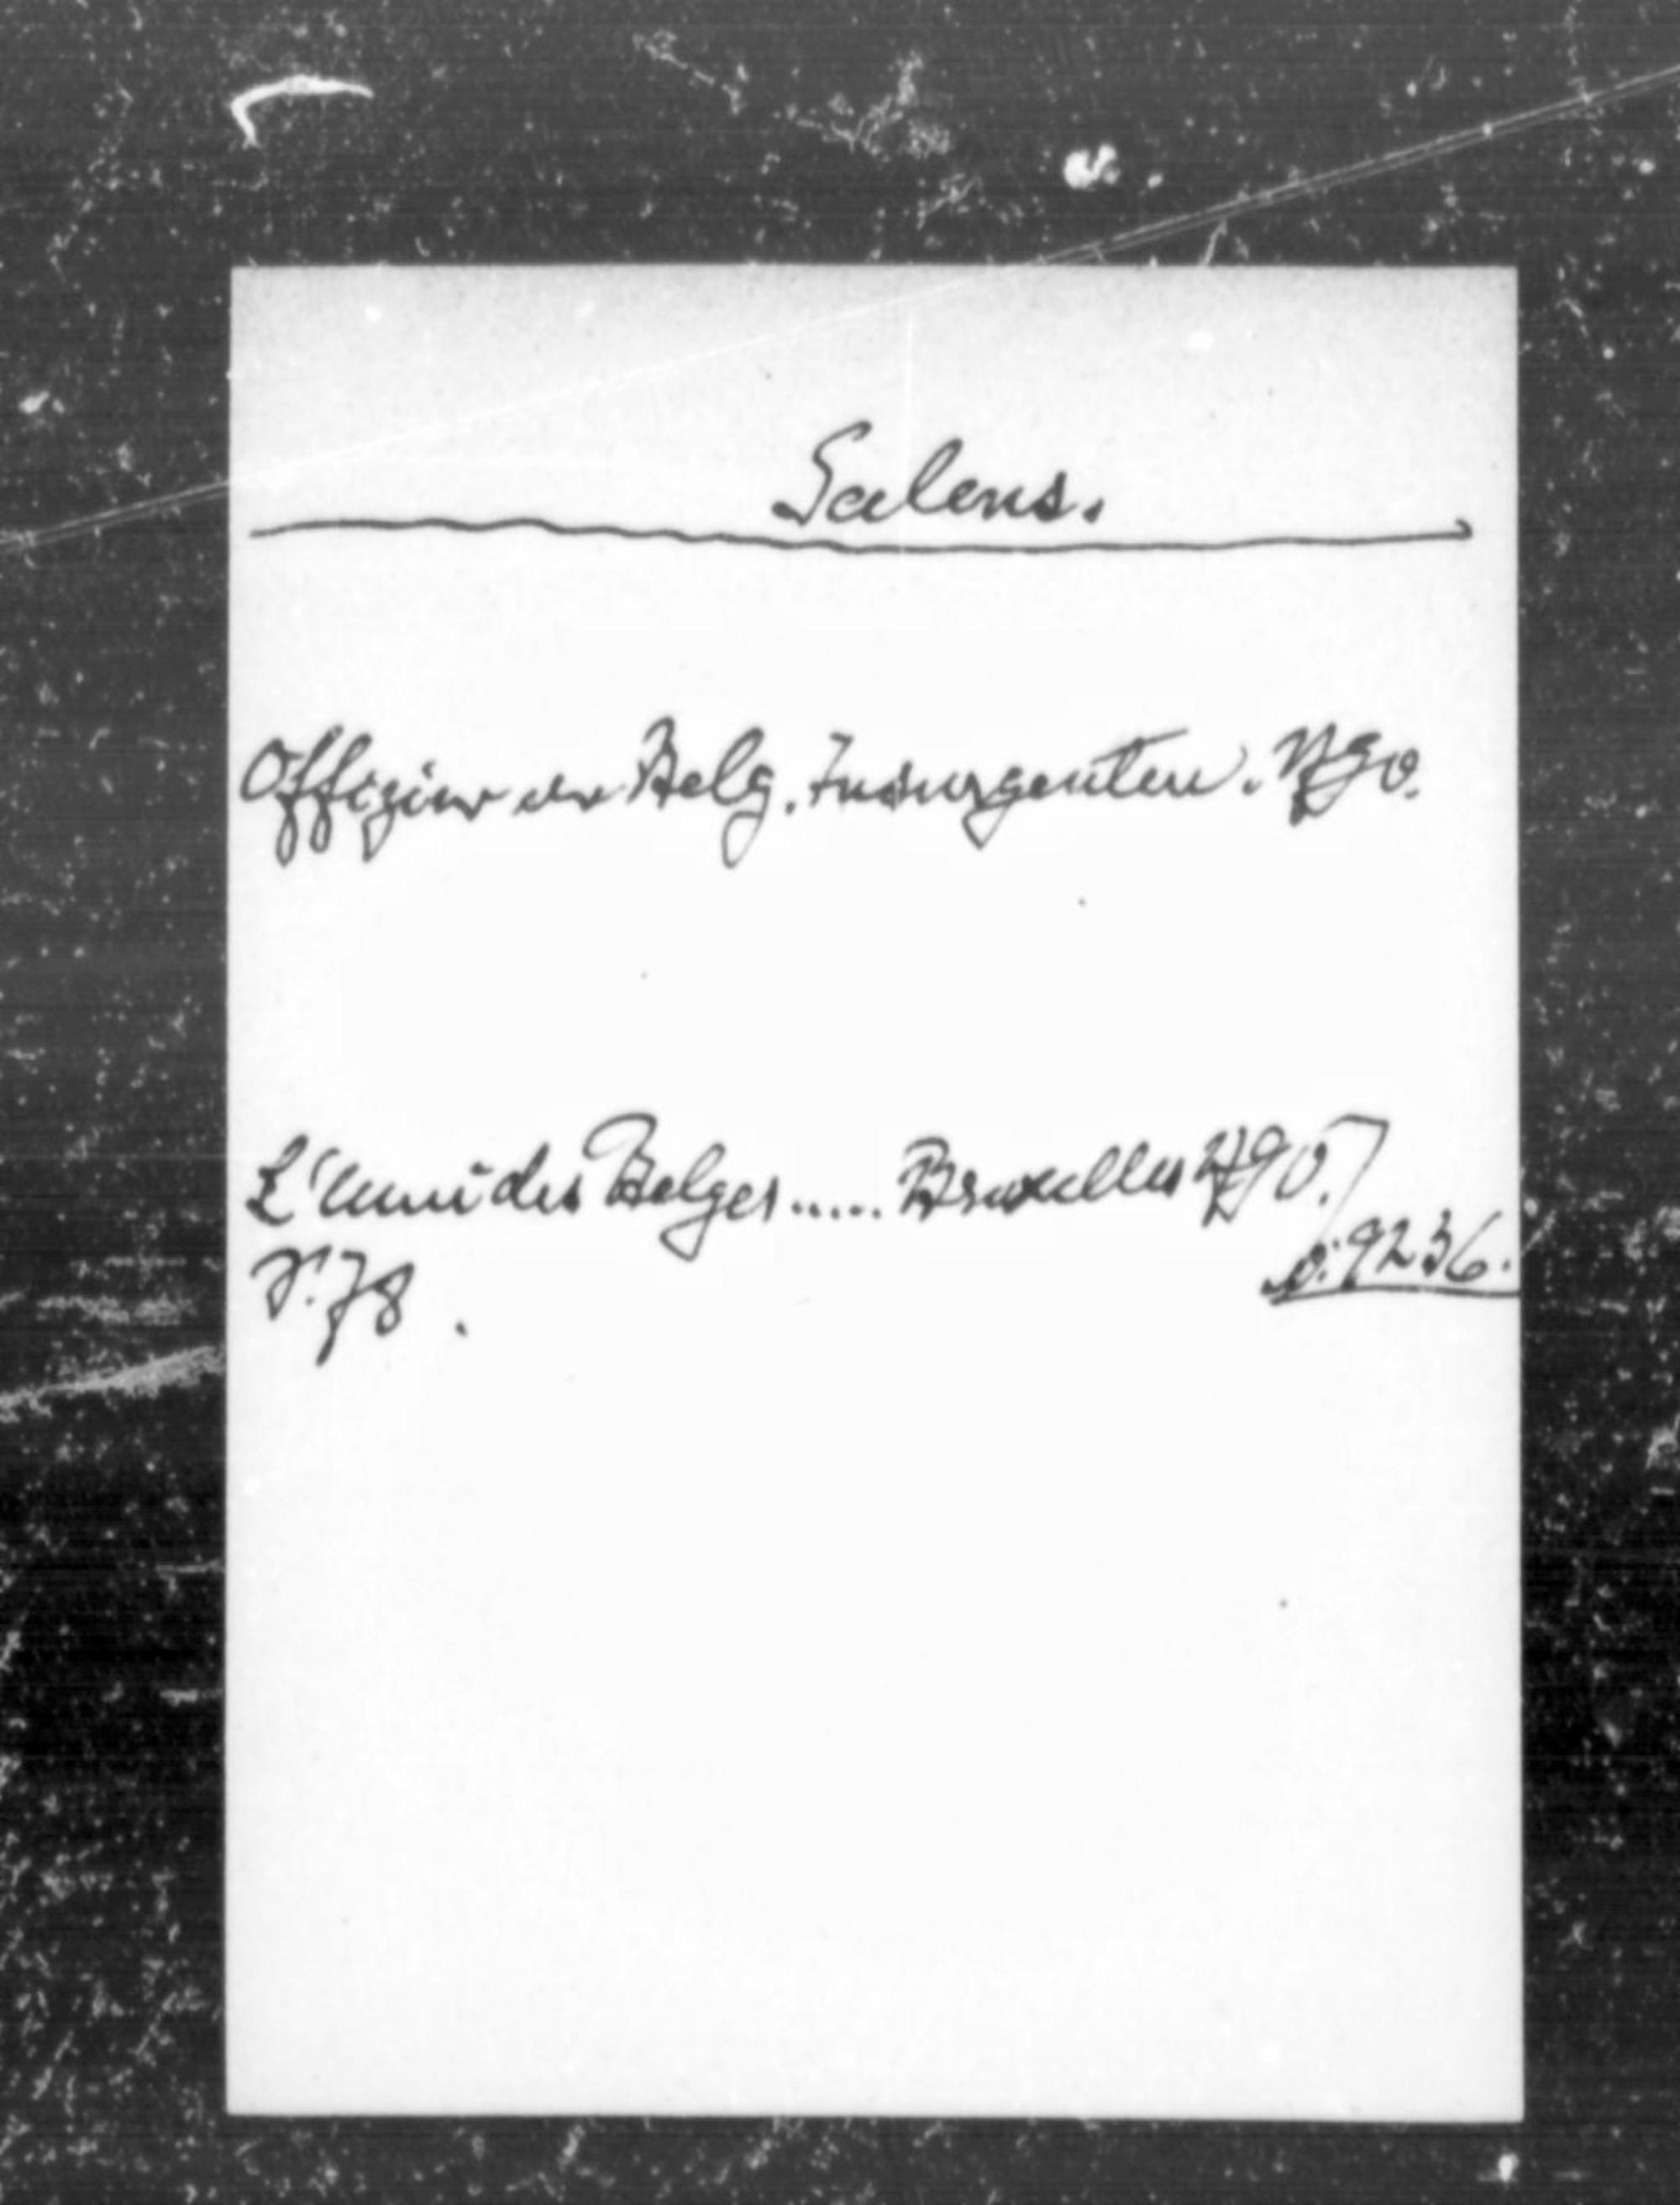 Salens.
Offizier der Belg. Insurgenten. 1790.
L'Ami des Belges ..... Bruxelles 1790.
S. 78.
9236.